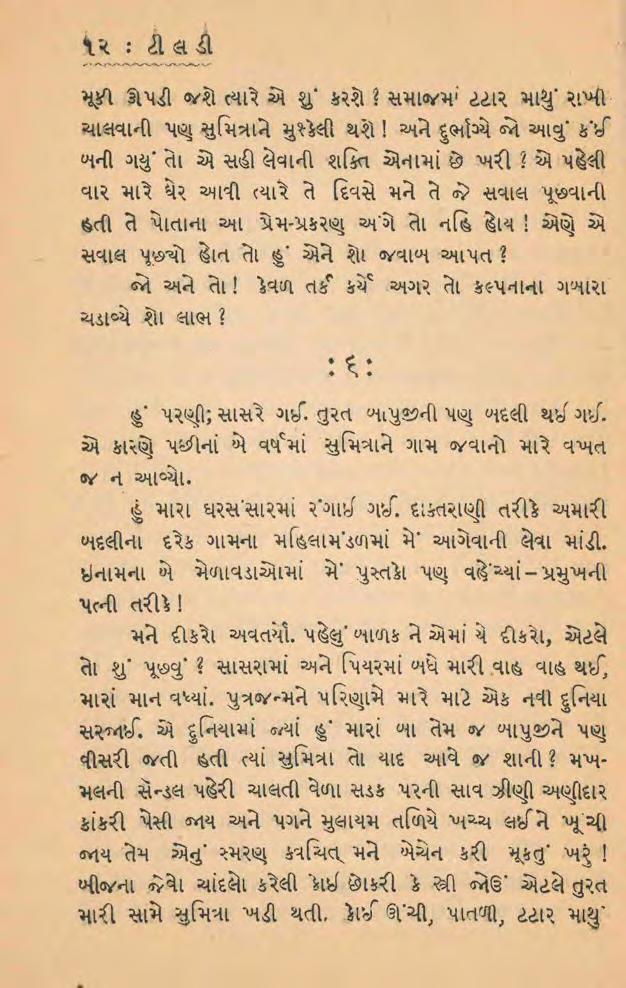 ૧૨ : ટીલડી
મૂકી ઊપડી જશે ત્યારે એ શું કરશે ? સમાજમાં ટટાર માથું રાખી
ચાલવાની પણ સુમિત્રાને મુશ્કેલી થશે ! અને દુર્ભાગ્યે જો આવું કંઈ
બની ગયું તો એ સહી લેવાની શક્તિ એનામાં છે ખરી ? એ પહેલી
વાર મારે ઘેર આવી ત્યારે તે દિવસે મને તે જે સવાલ પૂછવાની
હતી તે પોતાના આ પ્રેમ-પ્રકરણ અંગે તો નહિ હોય ! એણે એ
સવાલ પૂછ્યો હોત તો હું એને શો જવાબ આપત ?
જો અને તો ! કેવળ તર્ક કર્યે અગર તો કલ્પનાના ગબારા
ચડાવ્યે શો લાભ ?
: ૬ :
હું પરણી; સાસરે ગઈ. તુરત બાપુજીની પણ બદલી થઈ ગઈ.
એ કારણે પછીનાં બે વર્ષમાં સુમિત્રાને ગામ જવાનો મારે વખત
જ ન આવ્યો.
હું મારા ઘરસંસારમાં રંગાઈ ગઈ. દાક્તરાણી તરીકે અમારી
બદલીના દરેક ગામના મહિલામંડળમાં મેં આગેવાની લેવા માંડી.
ઇનામના બે મેળાવડાઓમાં મેં પુસ્તકો પણ વહેંચ્યાં – પ્રમુખની
પત્ની તરીકે !
મને દીકરો અવતર્યો. પહેલું બાળક ને એમાં યે દીકરો, એટલે
તો શું પૂછવું ? સાસરામાં અને પિયરમાં બધે મારી વાહ વાહ થઈ,
મારાં માન વધ્યાં. પુત્રજન્મને પરિણામે મારે માટે એક નવી દુનિયા
સરજાઈ. એ દુનિયામાં જ્યાં હું મારાં બા તેમ જ બાપુજીને પણ
વીસરી જતી હતી ત્યાં સુમિત્રા તો યાદ આવે જ શાની ? મખ-
મલની સૅન્ડલ પહેરી ચાલતી વેળા સડક પરની સાવ ઝીણી અણીદાર
કાંકરી પેસી જાય અને પગને મુલાયમ તળિયે ખચ્ચ લઈને ખૂંચી
જાય તેમ એનું સ્મરણ ક્વચિત્ મને બેચેન કરી મૂકતું ખરું !
બીજના જેવો ચાંદલો કરેલી કોઈ છોકરી કે સ્ત્રી જોઉં એટલે તુરત
મારી સામે સુમિત્રા ખડી થતી. કોઈ ઊંચી, પાતળી, ટટાર માથું